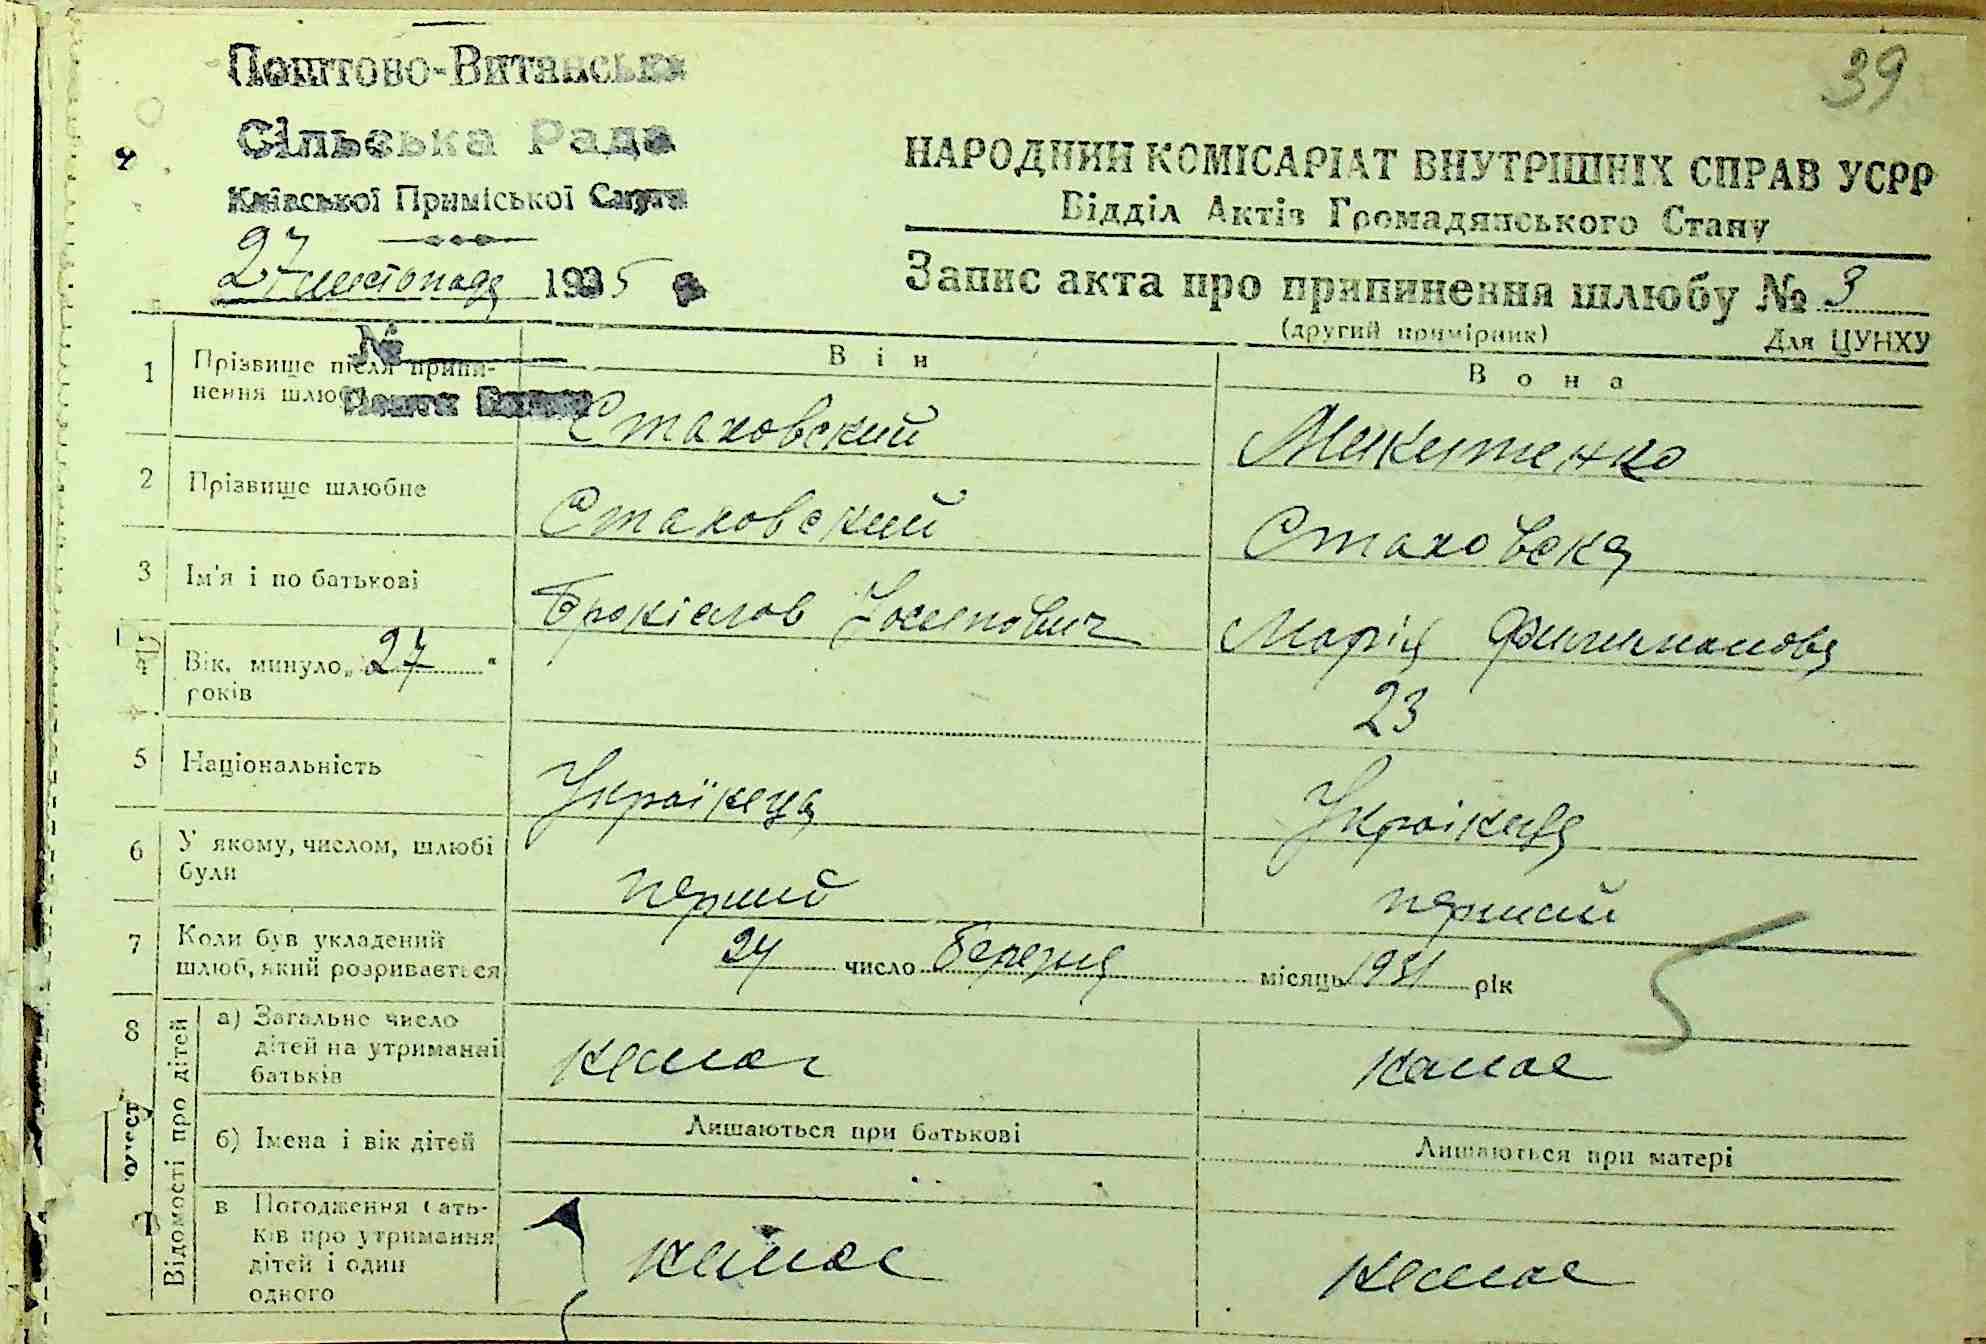 39
Поштово-Витянська
Сільська Рада
Київської Приміської Смуги
27 листопада 1935 р
НАРОДНИЙ КОМІСАРІАТ ВНУТРІШНІХ СПРАВ УСРР
Відділ Актів Громадянського Стану
Запис акта про припинення шлюбу № 3
(другий примірник) Для ЦУНХУ
№
Він Вона
1 Прізвище після припинення шлюбу Стаховский Микитенко
2 Прізвище шлюбне Стаховский Стаховска
3 Ім'я і по батькові Броніслов Йосипович Марія Филимонова
4 Вік, минуло „27" років 23
5 Національність Українец Українца
6 У якому, числом, шлюбі були перший перший
7 Коли був укладений шлюб, який розривається 24 число Березня місяць 1931 рік
8 Відомості про дітей
а) Загальне число дітей на утриманні батьків немає немає
б) Імена і вік дітей Лишаються при батькові Лишаються при матері
в Погодження батьків про утримання дітей і один одного немає немає